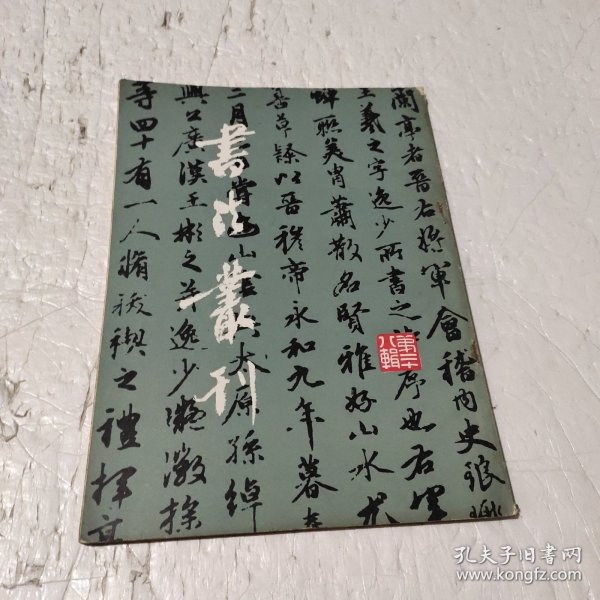 書法叢刊
第二十
八輯
蘭亭者晉右將軍會稽內史琅
王羲之字逸少所書之詩序也右軍
蟬聯美冑蕭散名賢雅好山水尤
善草隸以晉穆帝永和九年暮春
三月 山 太原孫綽
興公廣漢王彬之并逸少凝徽操
等四十有一人脩祓禊之禮揮毫
孔夫子旧书网
www.kongfz.com